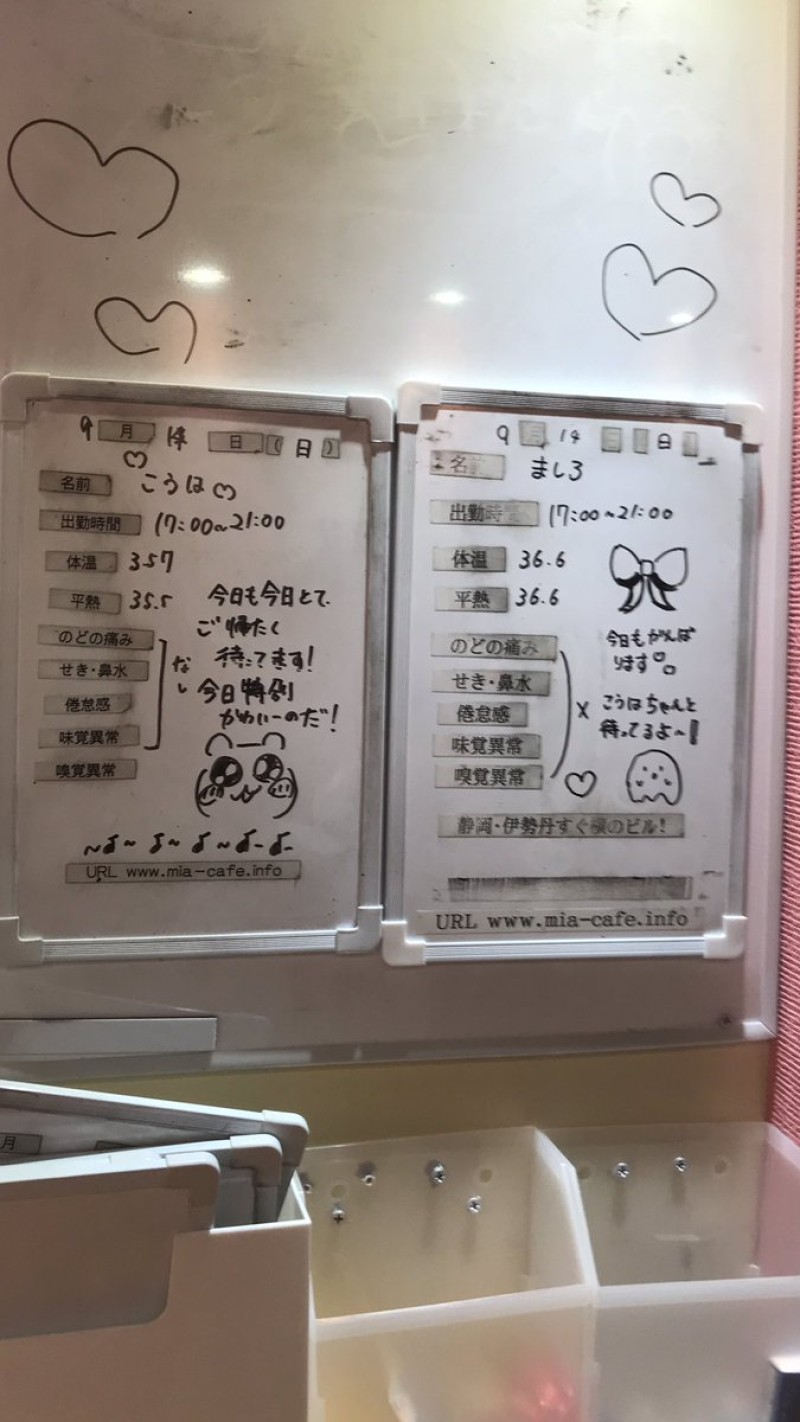 9月14日(日)
名前 こうは
出勤時間 17:00~21:00
体温 357
平熱 35.5
のどの痛み
せき・鼻水
倦怠感
味覚異常
嗅覚異常
なし
今日も今日とて
ご帰たく
待ってます!
今日特別
かわいーのだ!
URL www.mia-cafe.info
9月14日(日)
名前 ましろ
出勤時間 17:00~21:00
体温 36.6
平熱 36.6
のどの痛み
せき・鼻水
倦怠感
味覚異常
嗅覚異常
×
今日もがんば
ります
こうはちゃんと
待ってるよ~!
静岡・伊勢丹すぐ横のビル!
URL www.mia-cafe.info
月